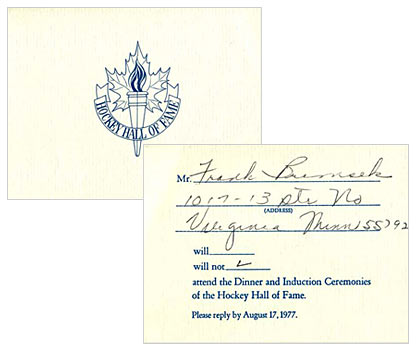 HOCKEY HALL OF FAME
Mr. Frank Brimsek
1017-13 Str No
(ADDRESS)
Virginia Minn 55792
will
will not ✓
attend the Dinner and Induction Ceremonies
of the Hockey Hall of Fame.
Please reply by August 17, 1977.